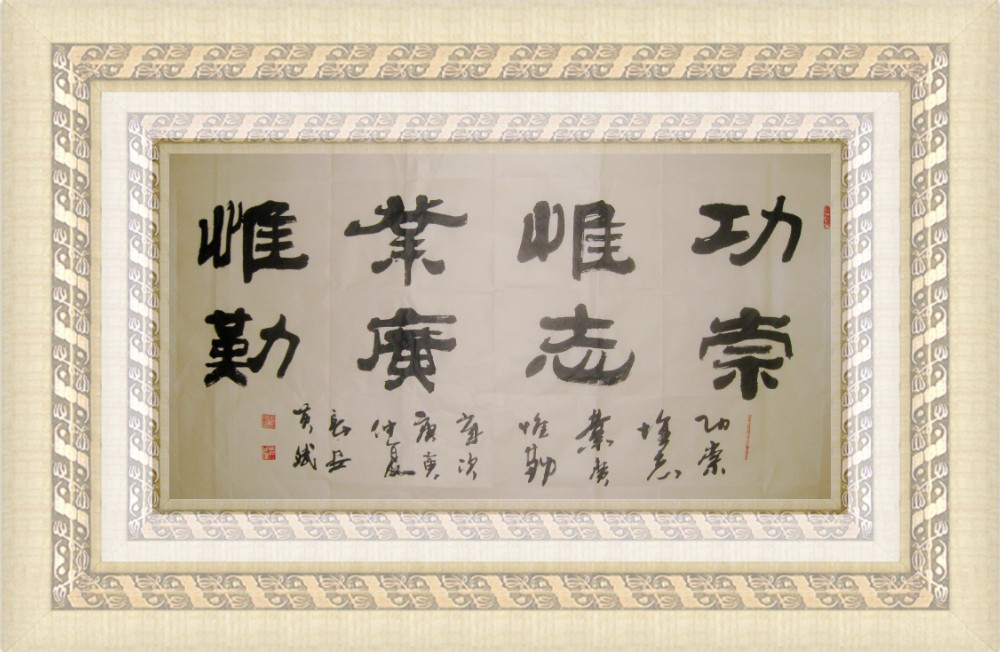 功崇
惟志
業廣
惟勤
功崇
惟志
業廣
惟勤
歲次
庚寅
仲夏
長安
黃斌